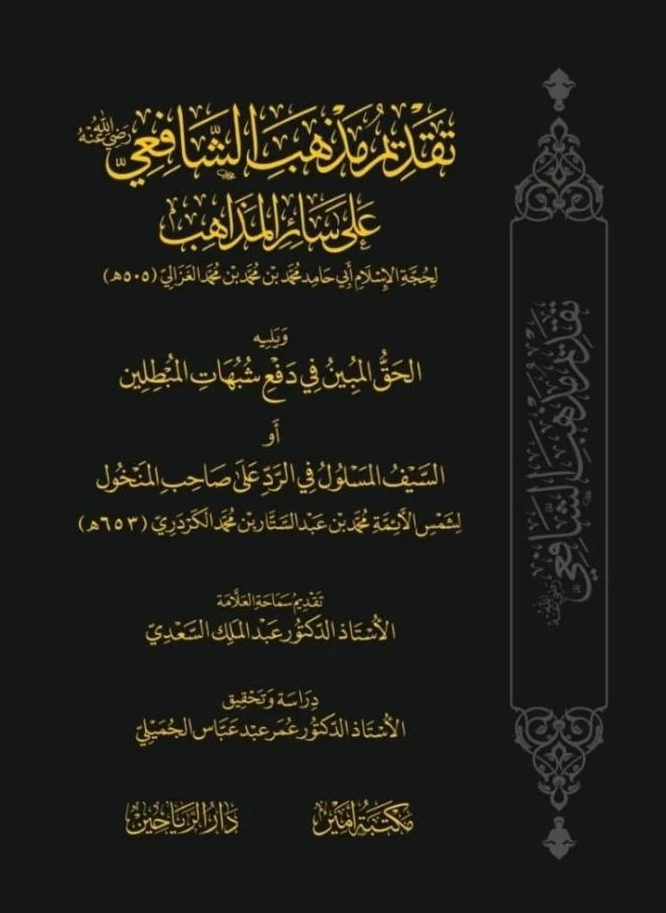 تَقْدِيمُ مَذْهَبِ الشَّافِعِيِّ رَضِيَ اللهُ عَنْهُ
عَلَى سَائِرِ المَذَاهِبِ
لِحُجَّةِ الإِسْلَامِ أَبِي حَامِد مُحَمَّد بْنِ مُحَمَّد بْنِ مُحَمَّد الغَزَالِيّ (٥٠٥هـ)
وَيَلِيه
الحَقُّ المُبِينُ فِي دَفْعِ شُبُهَاتِ المُبْطِلِين
أَو
السَّيْفُ المَسْلُولُ فِي الرَّدِّ عَلَى صَاحِبِ المَنْخُول
لِشَمْسِ الأَئِمَّةِ مُحَمَّد بْنِ عَبْد السَّتَّار بْنِ مُحَمَّد الكَرْدَرِيّ (٦٥٣هـ)
تَقْدِيمُ سَمَاحَةِ العَلَّامَة
الأُسْتَاذ الدّكتُور عَبْد المَلِك السَّعْدِيّ
دِرَاسَة وَتَحْقِيق
الأُسْتَاذ الدّكتُور عُمَر عَبْد عَبَّاس الجُمَيْلِيّ
مَكْتَبَة أَمِير
دَارُ الرَّيَاحِين
تَقْدِيمُ مَذْهَبِ الشَّافِعِيِّ رَضِيَ اللهُ عَنْهُ